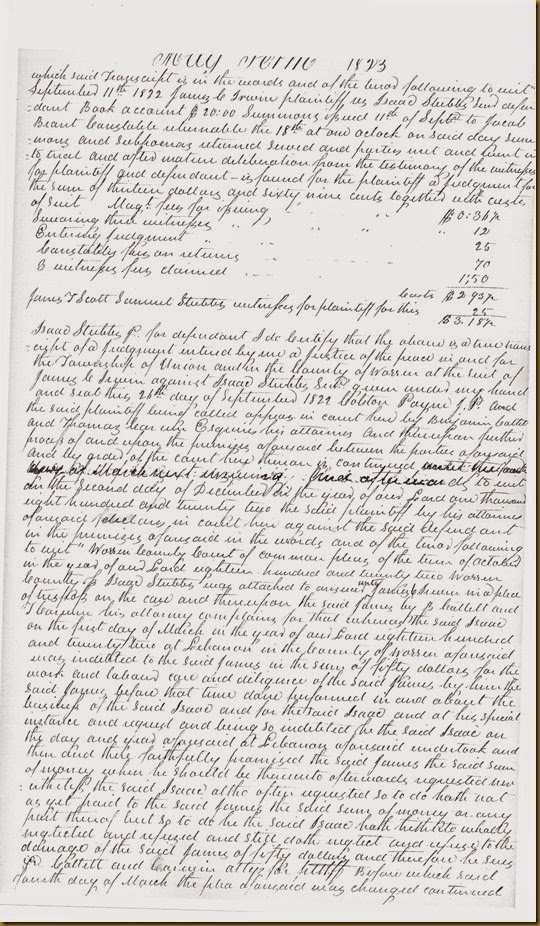 May Term 1823
which said Transcript is in the words and of the tenor following to wit"
September 11th 1822 James C Irwin plaintiff vs Isaac Stubbs Senr defen
dant Book account $20:00 Summons issued 11th of Septr to Jacob
Brant Constable returnable the 18th at one oclock on said day sum
mons and subpoenas returned served and parties met and went in
to trial and after mature deliberation from the testimony of the witnesses
for plaintiff and defendant is found for the plaintiff a judgment for
the sum of thirteen dollars and sixty nine cents together with costs
of suit Magt. fees for issuing " " $0:36½
Swearing three witnesses " " " 12
Entering judgment " " 25
Constables fees on returns 70
3 witnesses fees claimed 1,50
Costs $2 93½
James T Scott Samuel Stubbs witnesses for plaintiff for this 25
$3.18½
Isaac Stubbs Jr. for defendant I do Certify that the above is a true trans
cript of a judgment entered by me a justice of the peace in and for
the Township of Union and in the County of Warren at the suit of
James C Irwin against Isaac Stubbs Senr given under my hand
and seal this 26th day of September 1822 Colston Payne J.P. and
the said plaintiff being called appears in court here by Benjamin Collett
and Thomas Corwin Esquires his attornies and thereupon further
process of and upon the premises aforesaid between the parties aforesaid
and by order of the court here thereon is continued until the
day of March next ensuing. And afterwards to wit
on the second day of December in the year of our Lord one thousand
eight hundred and twenty two the said plaintiff by his attornies
aforesaid declares in court here against the said defendant
in the premises aforesaid in the words and of the tenor following
to wit "Warren County Court of common pleas of the term of October
in the year of our Lord eighteen hundred and twenty two Warren
County ss Isaac Stubbs was attached to answer unto James C Irwin in a plea
of trespass on the case and thereupon the said James by B Collett and
T Corwin his attorney complains for that whereas the said Isaac
on the first day of March in the year of our Lord eighteen hundred
and twenty two at Lebanon in the County of Warren aforesaid
was indebted to the said James in the sum of fifty dollars for the
work and labour care and diligence of the said James by him the
said James before that time done performed in and about the
business of the said Isaac and for the said Isaac and at his special
instance and request and being so indebted he the said Isaac on
the day and year aforesaid at Lebanon aforesaid undertook and
then and there faithfully promised the said James the said sum
of money when he should be thereunto afterwards requested nev
ertheless the said Isaac altho often requested so to do hath not
as yet paid to the said James the said sum of money or any
part thereof but so to do he the said Isaac hath hitherto wholly
neglected and refused and still doth neglect and refuse to the
damage of the said James of fifty dollars and therefore he sues
Collett and Corwin attys for pltff Before which said
fourth day of March the plea aforesaid was changed continued